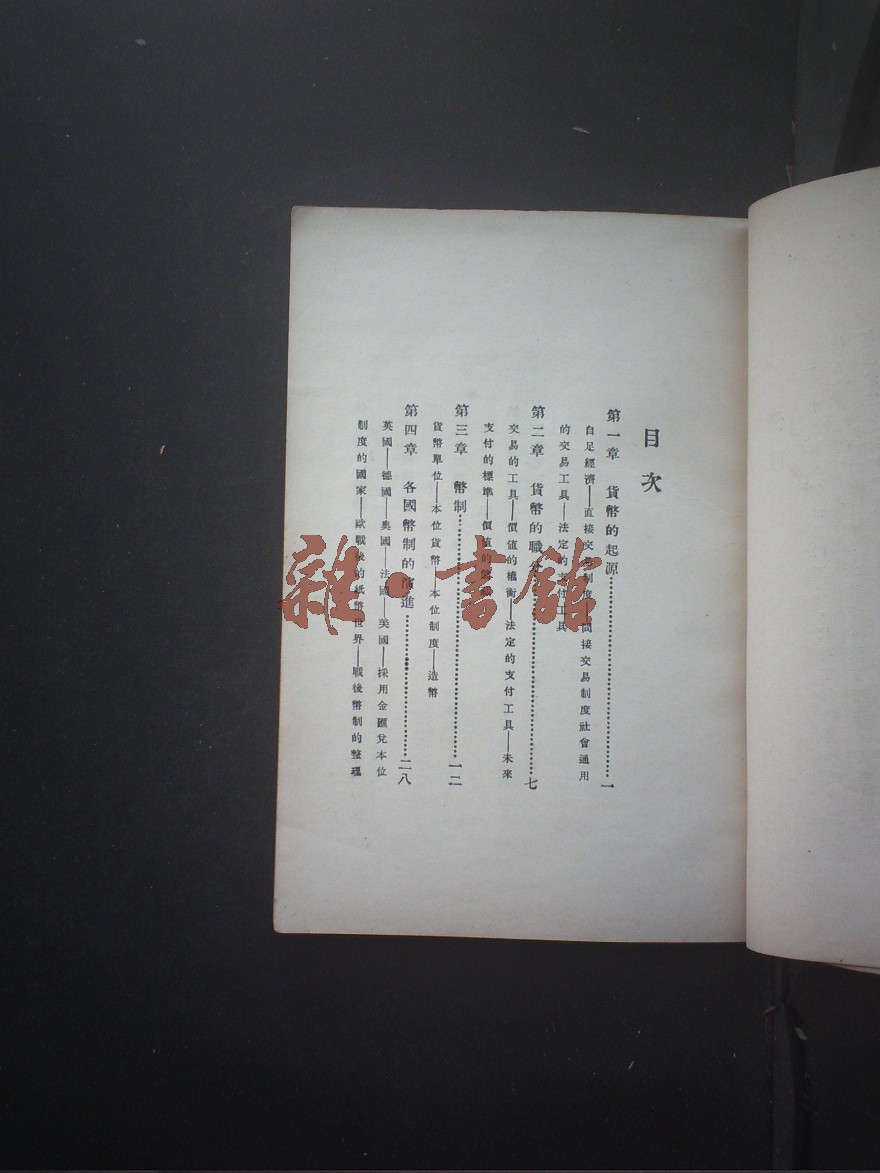 目次
第一章 貨幣的起源……一
自足經濟——直接交易制度——間接交易制度社會通用
的交易工具——法定的支付工具
第二章 貨幣的職分……七
交易的工具——價值的權衡——法定的支付工具——未來
支付的標準——價值的儲藏
第三章 幣制……一二
貨幣單位——本位貨幣——本位制度——造幣
第四章 各國幣制的演進……二八
英國——德國——奧國——法國——美國——採用金匯兌本位
制度的國家——歐戰後的紙幣世界——戰後幣制的整理
雜·書館